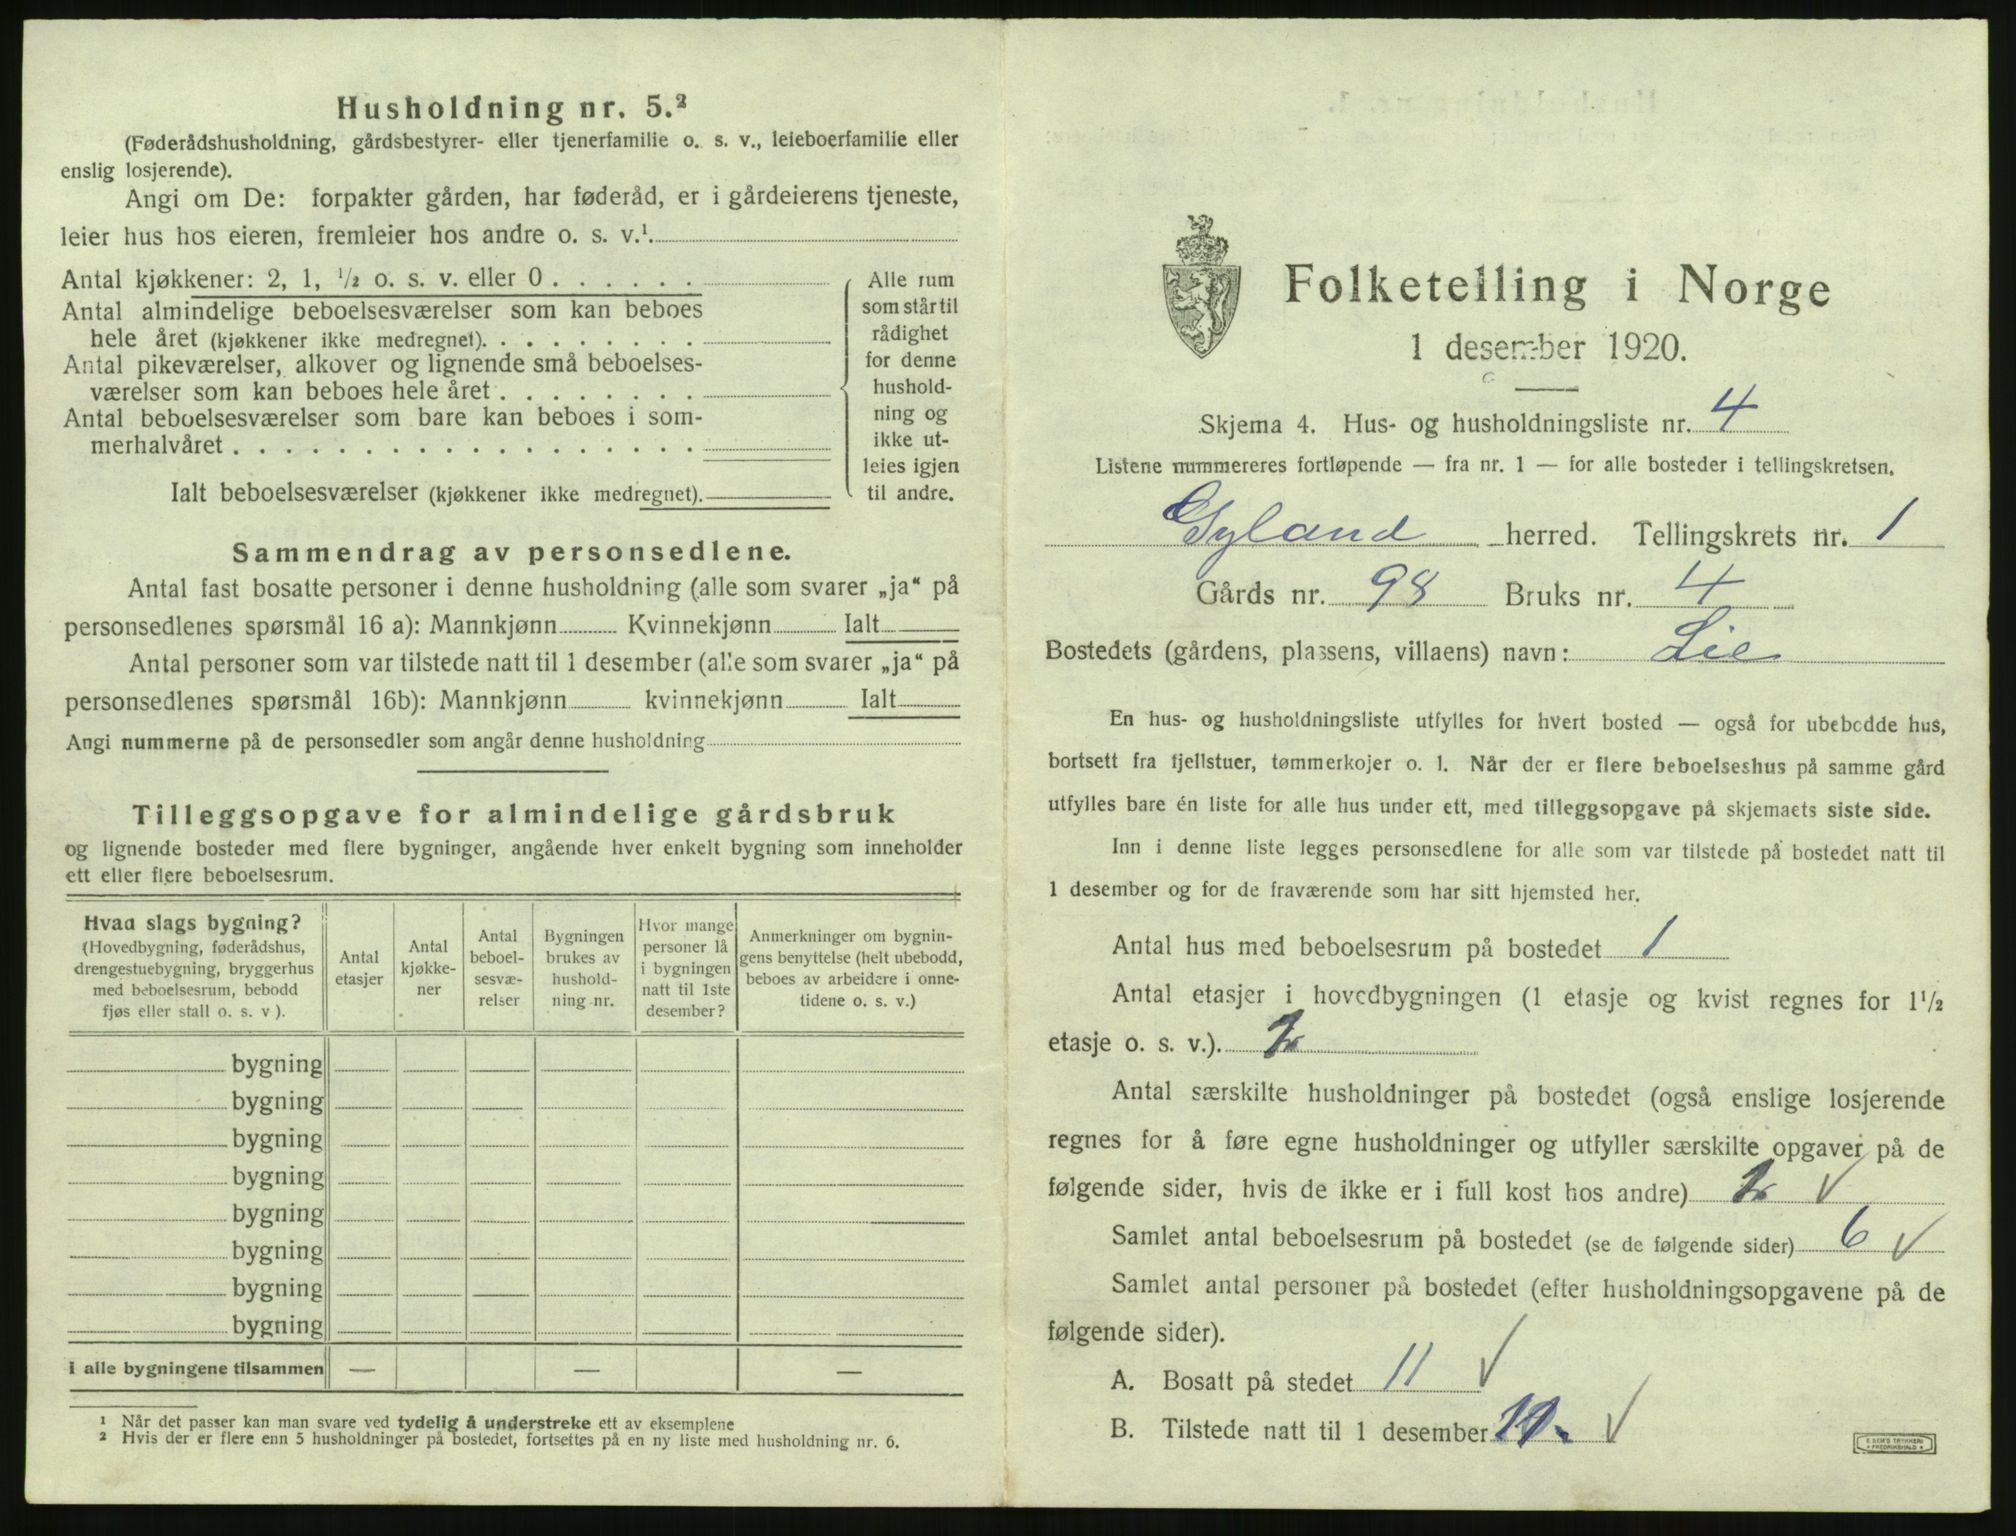 Husholdning nr. 5.²
(Føderådshusholdning, gårdsbestyrer- eller tjenerfamilie o. s. v., leieboerfamilie eller
enslig losjerende).
Angi om De: forpakter gården, har føderåd, er i gårdeierens tjeneste,
leier hus hos eieren, fremleier hos andre o. s. v.¹.
Antal kjøkkener: 2, 1, ½ o. s. v. eller 0 . . . . . .
Antal almindelige beboelsesværelser som kan beboes
hele året (kjøkkener ikke medregnet). . . . . . . . .
Antal pikeværelser, alkover og lignende små beboelses-
værelser som kan beboes hele året . . . . . . . .
Antal beboelsesværelser som bare kan beboes i som-
merhalvåret . . . . . . . . . . . . . . . . . .
Ialt beboelsesværelser (kjøkkener ikke medregnet).
Alle rum
som står til
rådighet
for denne
hushold-
ning og
ikke ut-
leies igjen
til andre.
Sammendrag av personsedlene.
Antal fast bosatte personer i denne husholdning (alle som svarer „ja“ på
personsedlenes spørsmål 16 a): Mannkjønn Kvinnekjønn Ialt
Antal personer som var tilstede natt til 1 desember (alle som svarer „ja“ på
personsedlenes spørsmål 16b): Mannkjønn kvinnekjønn Ialt
Angi nummerne på de personsedler som angår denne husholdning
Tilleggsopgave for almindelige gårdsbruk
og lignende bosteder med flere bygninger, angående hver enkelt bygning som inneholder
ett eller flere beboelsesrum.
Hvad slags bygning?
(Hovedbygning, føderådshus,
drengestuebygning, bryggerhus
med beboelsesrum, bebodd
fjøs eller stall o. s. v ).
Antal
etasjer
Antal
kjøkke-
ner
Antal
beboel-
sesvæ-
relser
Bygningen
brukes av
hushold-
ning nr.
Hvor mange
personer lå
i bygningen
natt til 1ste
desember?
Anmerkninger om bygnin-
gens benyttelse (helt ubebodd,
beboes av arbeidere i onne-
tidene o. s. v.)
bygning
bygning
bygning
bygning
bygning
bygning
bygning
bygning
i alle bygningene tilsammen — — —
¹ Når det passer kan man svare ved tydelig å understreke ett av eksemplene
² Hvis der er flere enn 5 husholdninger på bostedet, fortsettes på en ny liste med husholdning nr. 6.
Folketelling i Norge
1 desember 1920.
Skjema 4. Hus- og husholdningsliste nr. 4
Listene nummereres fortløpende — fra nr. 1 — for alle bosteder i tellingskretsen.
Gyland herred. Tellingskrets nr. 1
Gårds nr. 98 Bruks nr. 4
Bostedets (gårdens, plassens, villaens) navn: Lie
En hus- og husholdningsliste utfylles for hvert bosted — også for ubebodde hus,
bortsett fra fjellstuer, tømmerkojer o. l. Når der er flere beboelseshus på samme gård
utfylles bare én liste for alle hus under ett, med tilleggsopgave på skjemaets siste side.
Inn i denne liste legges personsedlene for alle som var tilstede på bostedet natt til
1 desember og for de fraværende som har sitt hjemsted her.
Antal hus med beboelsesrum på bostedet 1
Antal etasjer i hovedbygningen (1 etasje og kvist regnes for 1½
etasje o. s. v.). 2
Antal særskilte husholdninger på bostedet (også enslige losjerende
regnes for å føre egne husholdninger og utfyller særskilte opgaver på de
følgende sider, hvis de ikke er i full kost hos andre) 2 ✓
Samlet antal beboelsesrum på bostedet (se de følgende sider) 6 ✓
Samlet antal personer på bostedet (efter husholdningsopgavene på de
følgende sider).
A. Bosatt på stedet 11 ✓
B. Tilstede natt til 1 desember ✓
E. SEM'S TRYKKERI
FREDRIKSHALD